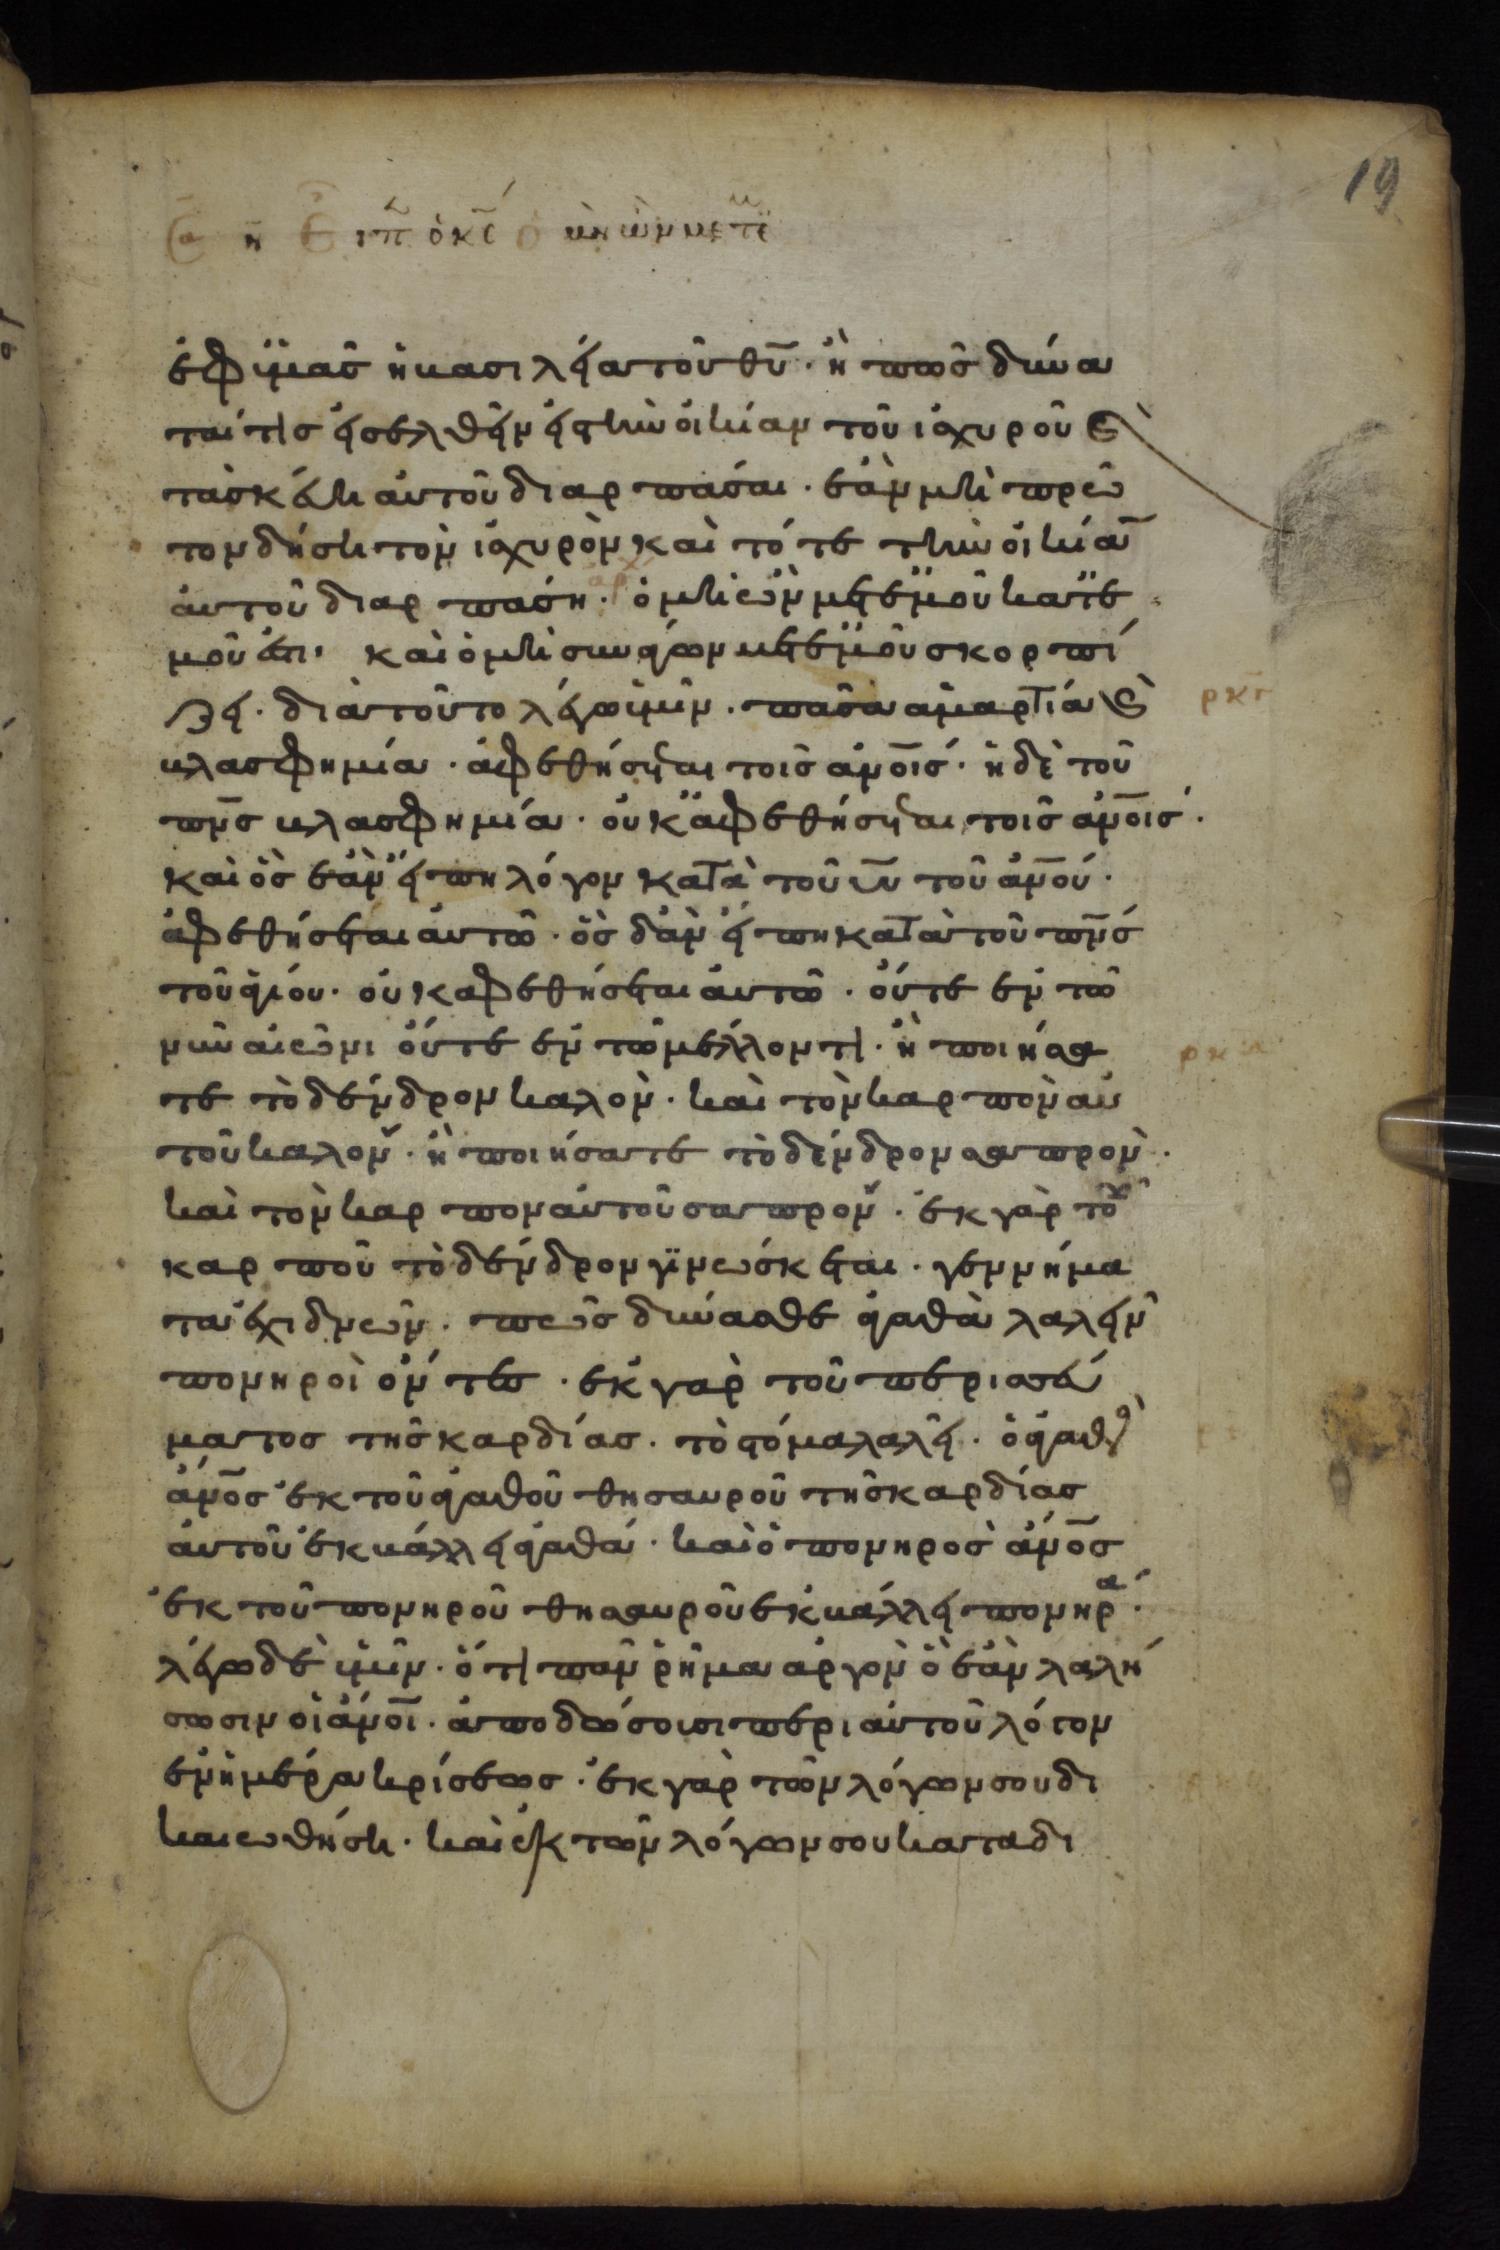 19
η ειπ ὁ κς ὁ μὴ ὢν μετ
ἐφ ὑμᾶς ἡ βασιλεία τοῦ θυ · ἢ πῶς δύνα
ταί τις εἰσελθεῖν εἰς τὴν οἰκίαν τοῦ ἰσχυροῦ καὶ
τὰ σκεύη αὐτοῦ διαρπάσαι · ἐὰν μὴ πρῶ
τον δήσῃ τὸν ἰσχυρὸν καὶ τότε τὴν οἰκίαν
αὐτοῦ διαρπάσῃ · ὁ μὴ ὢν μετ ἐμοῦ κατ ἐ
μοῦ ἐστι · καὶ ὁ μὴ συνάγων μετ ἐμοῦ σκορπί
ζει · διὰ τοῦτο λέγω ὑμῖν · πᾶσα ἁμαρτία καὶ
βλασφημία · ἀφεθήσεται τοῖς ἀνοις · ἡ δὲ τοῦ
πνς βλασφημία · οὐκ ἀφεθήσεται τοῖς ἀνοις ·
καὶ ὃς ἐὰν εἴπῃ λόγον κατὰ τοῦ υυ τοῦ ἀνου ·
ἀφεθήσεται αὐτῶ · ὃς δ ἂν εἴπῃ κατὰ τοῦ πνς
τοῦ ἁγίου · οὐκ ἀφεθήσεται αὐτῶ · οὔτε ἐν τῶ
νῦν αἰῶνι οὔτε ἐν τῶ μέλλοντι · ἢ ποιήσα
τε τὸ δένδρον καλὸν · καὶ τὸν καρπὸν αὐ
τοῦ καλὸν · ἢ ποιήσατε τὸ δένδρον σαπρὸν ·
καὶ τὸν καρπον αὐτοῦ σαπρὸν · ἐκ γὰρ τοῦ
καρποῦ τὸ δένδρον γινώσκεται · γεννήμα
τα ἐχιδνῶν · πῶς δύνασθε ἀγαθὰ λαλεῖν
πονηροὶ ὄντες · ἐκ γὰρ τοῦ περισσεύ
ματος τῆς καρδίας · τὸ στόμα λαλεῖ · ὁ ἀγαθὸς
ἄνος ἐκ τοῦ ἀγαθοῦ θησαυροῦ τῆς καρδίας
αὐτοῦ ἐκβάλλει ἀγαθά · καὶ ὁ πονηρὸς ἄνος
ἐκ τοῦ πονηροῦ θησαυροῦ ἐκβάλλει πονηρά ·
λέγω δὲ ὑμῖν · ὅτι πᾶν ῥῆμα ἀργὸν ὃ ἐὰν λαλή
σωσιν οἱ ἄνοι · ἀποδώσουσι περι αὐτοῦ λόγον
ἐν ἡμέρα κρίσεως · ἐκ γὰρ τῶν λόγων σου δι
καιωθήσῃ · καὶ ἐκ τῶν λόγων σου καταδι